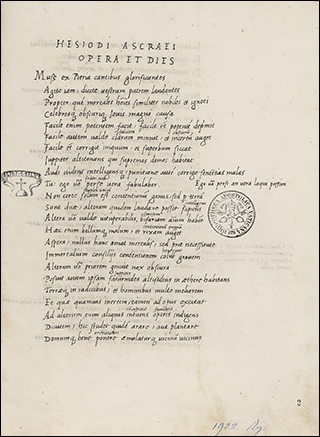 HESIODI ASCRAEI
OPERA ET DIES
Musae ex Pieria cantibus glorificantes
Agite iam, dicite vestrum patrem laudantes
Propter que mortales hoies similiter nobiles et ignoti
Celebresq, obscuriq; Iovis magni causa
Facile enim potentem facit, facile et potente deprimit
Facile autem valde clarum minuit, et incertu auget
Facile et corrigit iniquum, et superbum siccat
Iuppiter altitonans qui supremas domos habitat
Audi videns intelligens q; punitione aute corrige sententias malas
Tu: ego vero perse vera fabulabor.
Ego vo psi an vera loqui possim
Non certe solum est contentionum genus, sed p terra
Sunt due: alteram quidem laudare posset sapiens
Altera vo valde vituperabilis, bifariam aium habet
Hec enim bellumq, malum, et rixam auget
Aspera: nullus hanc amat mortalis, sed pra necessitate
Immortalium consiliis contentionem colut gravem
Alteram vo priorem genuit nox obscura
Posuit autem ipsam saturnides altesedens in aethere habitans
Terraeq, in radicibus, et hominibus multo meliorem
Et quae quamvis inertem tamen ad opus excitat
Ad alterum enim aliquis intuens operis indigens
Divitem, hic studet quide arare, atq plantare
Domumq, bene ponere aemulaturq, vicinu vicinus
2
1902